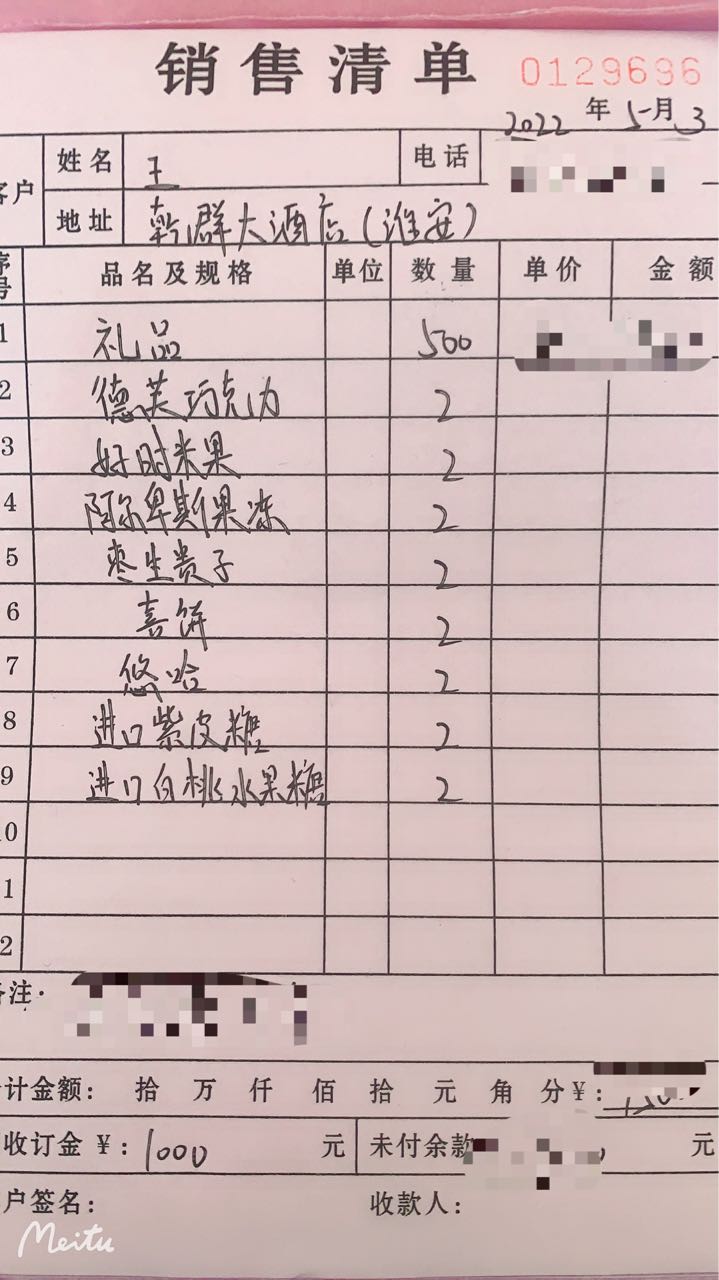 销售清单 0129696
2022 年 5 月 3
客户 姓名 王 电话
地址 乾群大酒店(淮安)
序号 品名及规格 单位 数量 单价 金额
1 礼品 500
2 德芙巧克力 2
3 好时米果 2
4 阿尔卑斯果冻 2
5 枣生贵子 2
6 喜饼 2
7 悠哈 2
8 进口紫皮糖 2
9 进口白桃水果糖 2
0
1
2
备注:
计金额: 拾 万 仟 佰 拾 元 角 分 ¥:
收订金 ¥: 1000 元 未付余款 元
户签名: 收款人:
Meitu